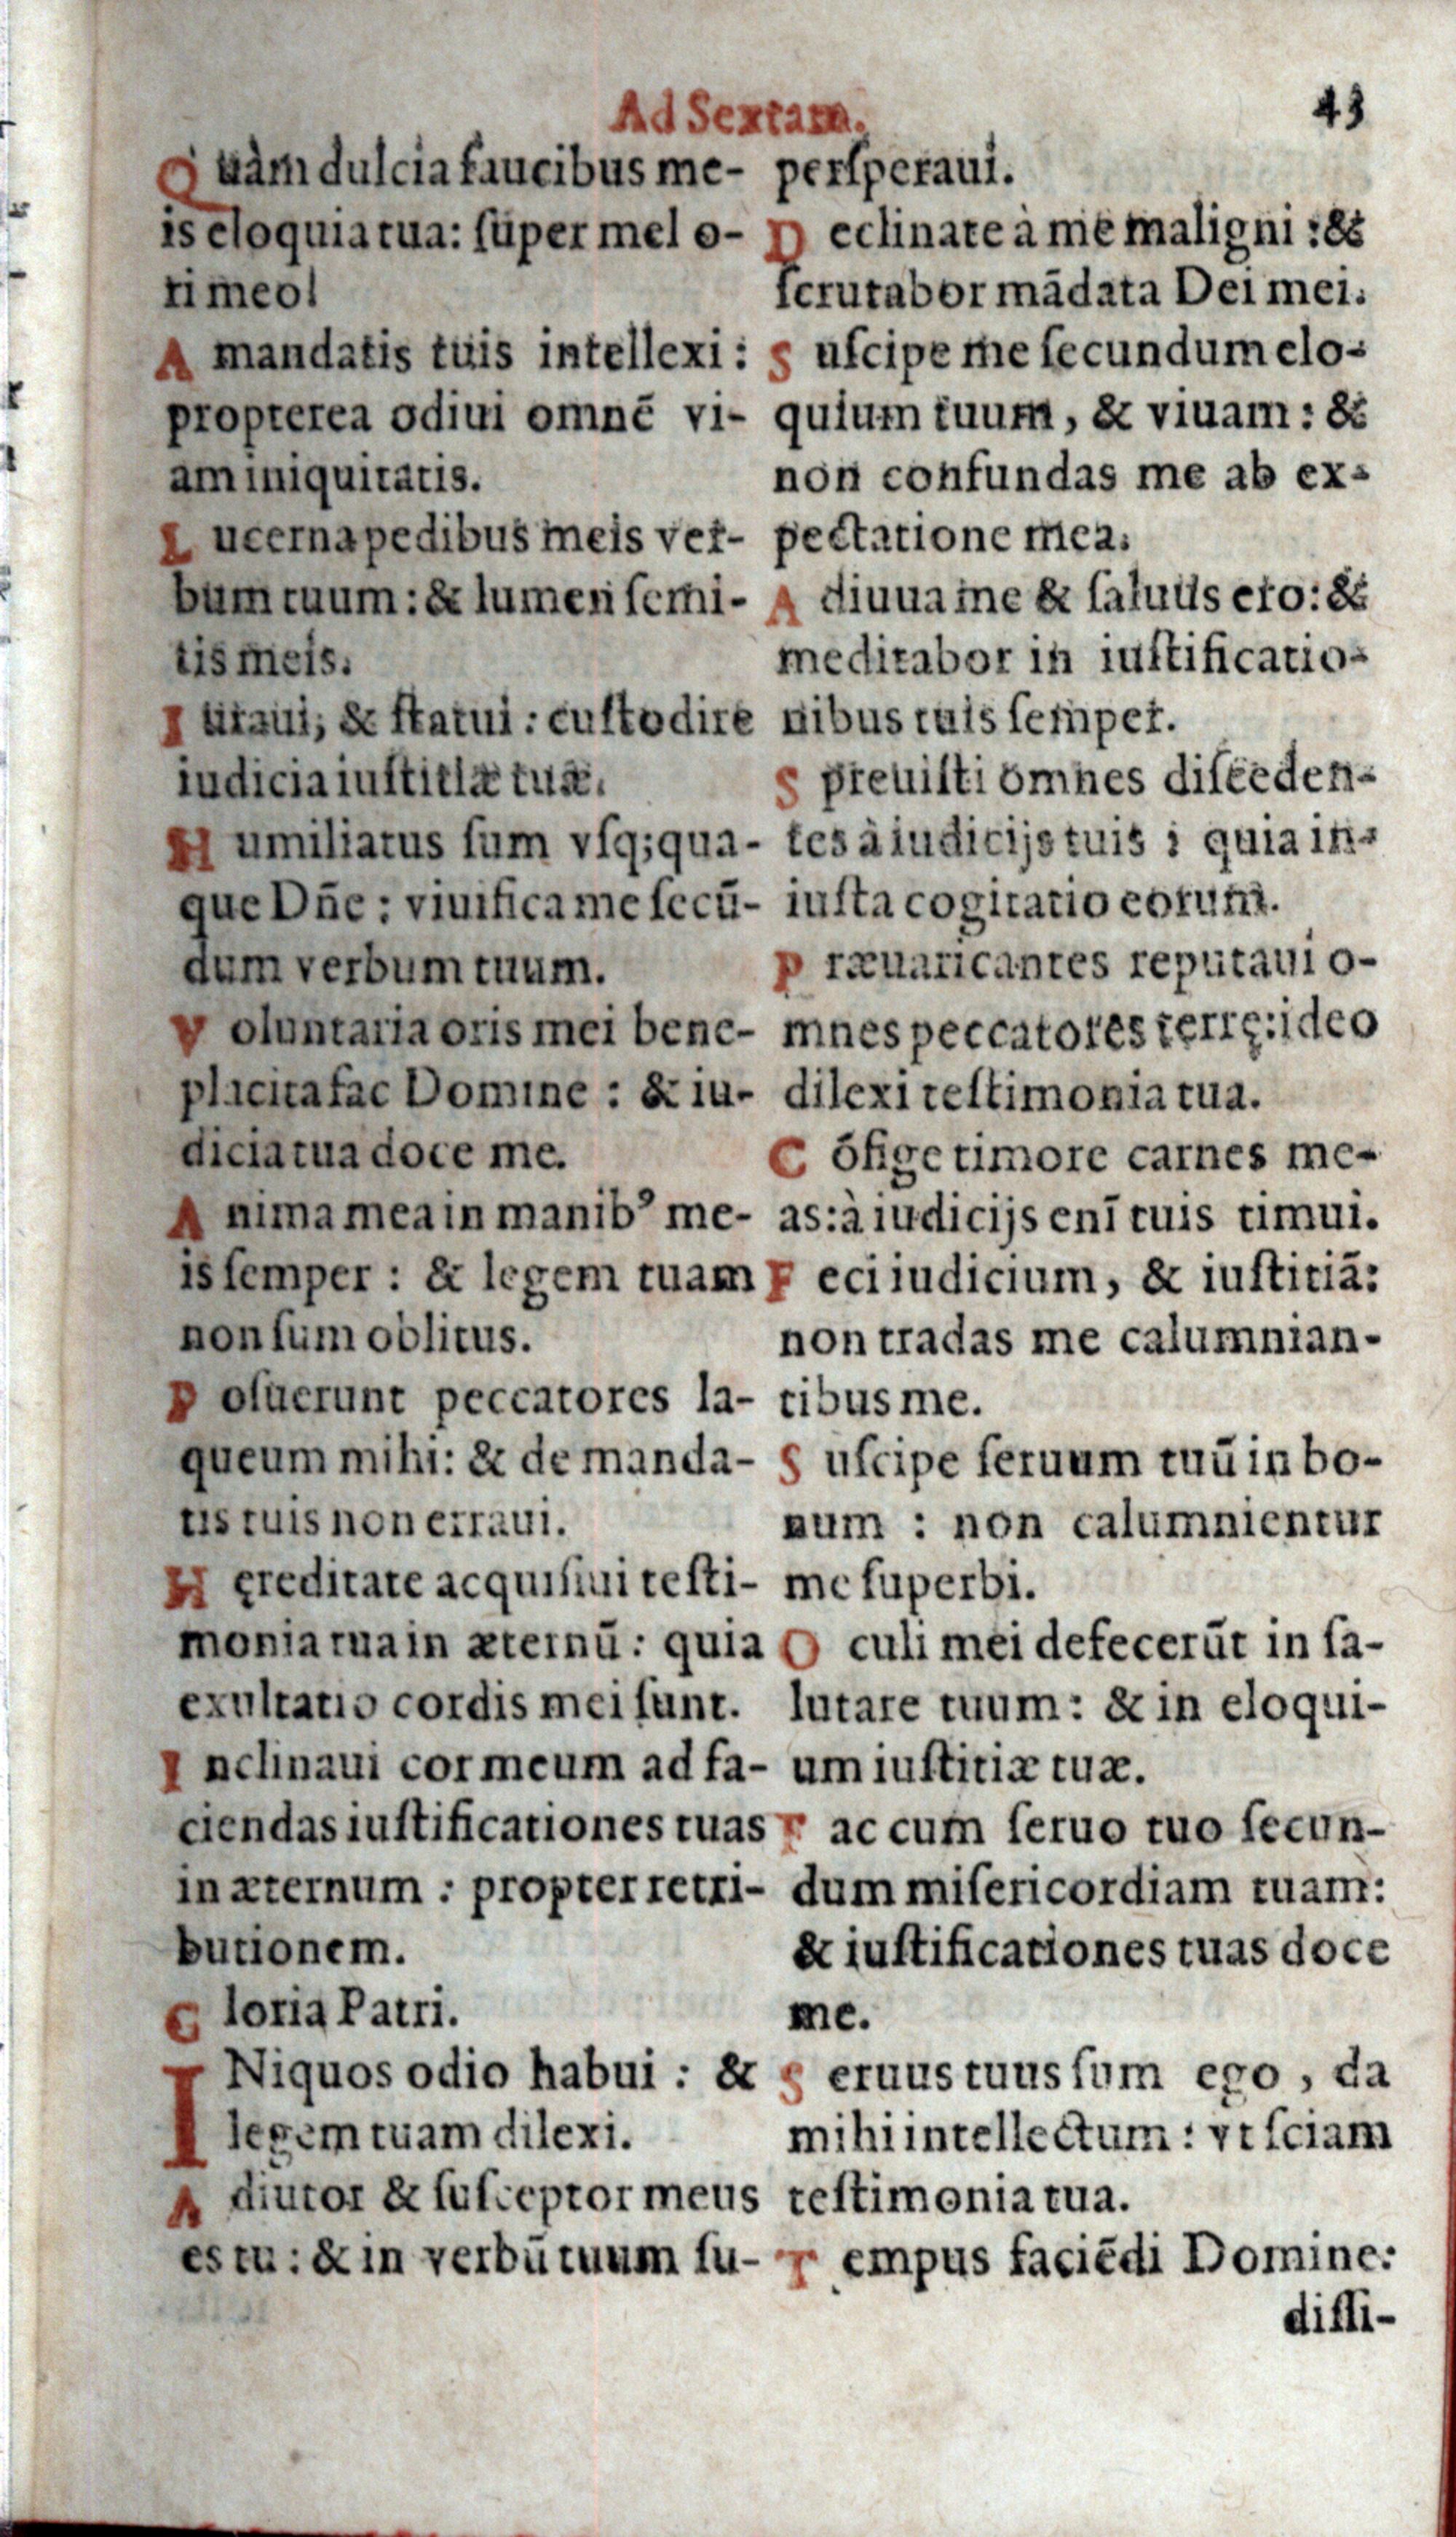 Ad Sextam.
43
Quàm dulcia faucibus me-
is eloquia tua: ſuper mel o-
ri meo!
A mandatis tuis intellexi:
propterea odiui omnē vi-
am iniquitatis.
Lucerna pedibus meis ver-
bum tuum: & lumen ſemi-
tis meis.
Iuraui, & ſtatui: cuſtodire
iudicia iuſtitiæ tuæ.
Humiliatus ſum vſq; qua-
que Dñe: viuifica me ſecū-
dum verbum tuum.
Voluntaria oris mei bene-
placita fac Domine: & iu-
dicia tua doce me.
Anima mea in manibꝰ me-
is ſemper: & legem tuam
non ſum oblitus.
Poſuerunt peccatores la-
queum mihi: & de manda-
tis tuis non erraui.
Hęreditate acquiſiui teſti-
monia tua in æternū: quia
exultatio cordis mei ſunt.
Inclinaui cor meum ad fa-
ciendas iuſtificationes tuas
in æternum: propter retri-
butionem.
Gloria Patri.
INiquos odio habui: &
legem tuam dilexi.
Adiutor & ſuſceptor meus
es tu: & in verbū tuum ſu-
perſperaui.
Declinate à me maligni: &
ſcrutabor mādata Dei mei.
Suſcipe me ſecundum elo-
quium tuum, & viuam: &
non confundas me ab ex-
pectatione mea.
Adiuua me & ſaluus ero: &
meditabor in iuſtificatio-
nibus tuis ſemper.
Spreuiſti omnes diſceden-
tes à iudicijs tuis: quia in-
iuſta cogitatio eorum.
Præuaricantes reputaui o-
mnes peccatores terrę: ideo
dilexi teſtimonia tua.
Cōfige timore carnes me-
as: à iudicijs enī tuis timui.
Feci iudicium, & iuſtitiā:
non tradas me calumnian-
tibus me.
Suſcipe ſeruum tuū in bo-
num: non calumnientur
me ſuperbi.
Oculi mei defecerūt in ſa-
lutare tuum: & in eloqui-
um iuſtitiæ tuæ.
Fac cum ſeruo tuo ſecun-
dum miſericordiam tuam:
& iuſtificationes tuas doce
me.
Seruus tuus ſum ego, da
mihi intellectum: vt ſciam
teſtimonia tua.
Tempus faciēdi Domine:
diſſi-